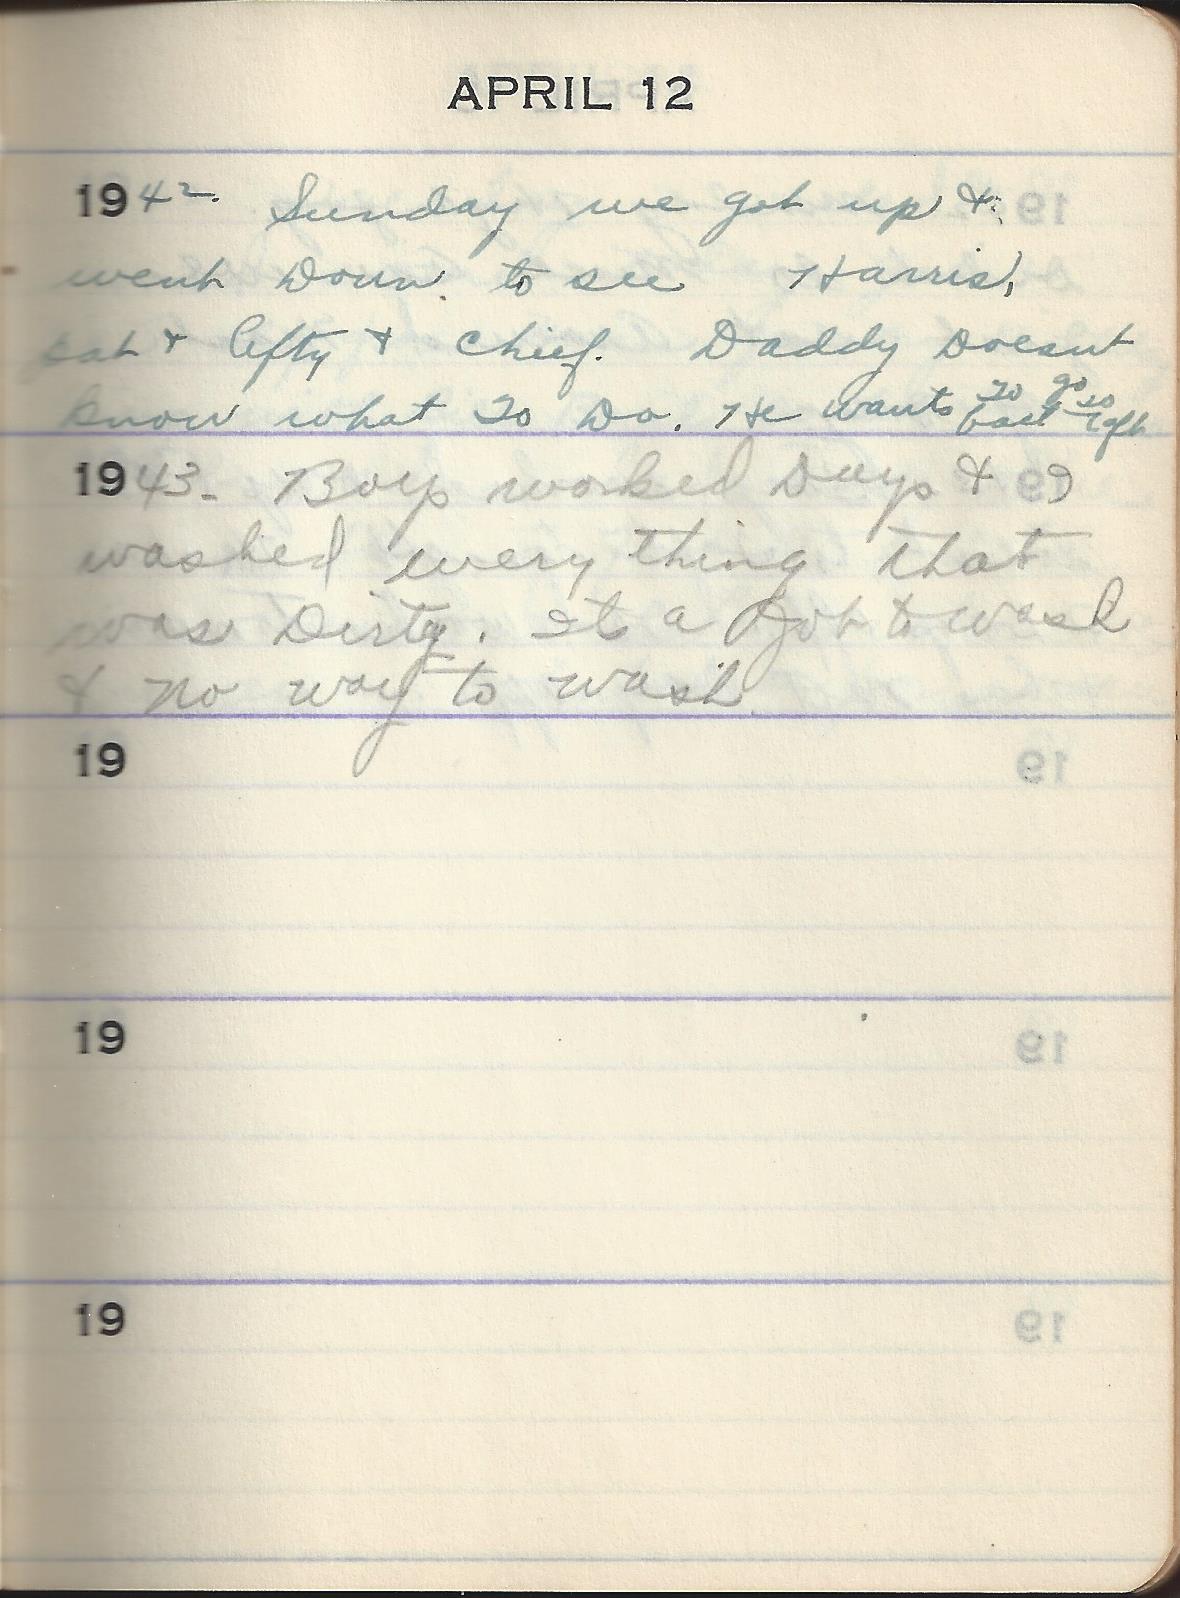 APRIL 12
1942. Sunday we got up &
went Down. to see Harris,
& Lefty & Chief. Daddy Doesnt
know what To Do. He wants To go so bad
1943. Boys worked Days & I
washed every thing that
was Dirty. Its a Job to wash
& no way to wash
19
19
19